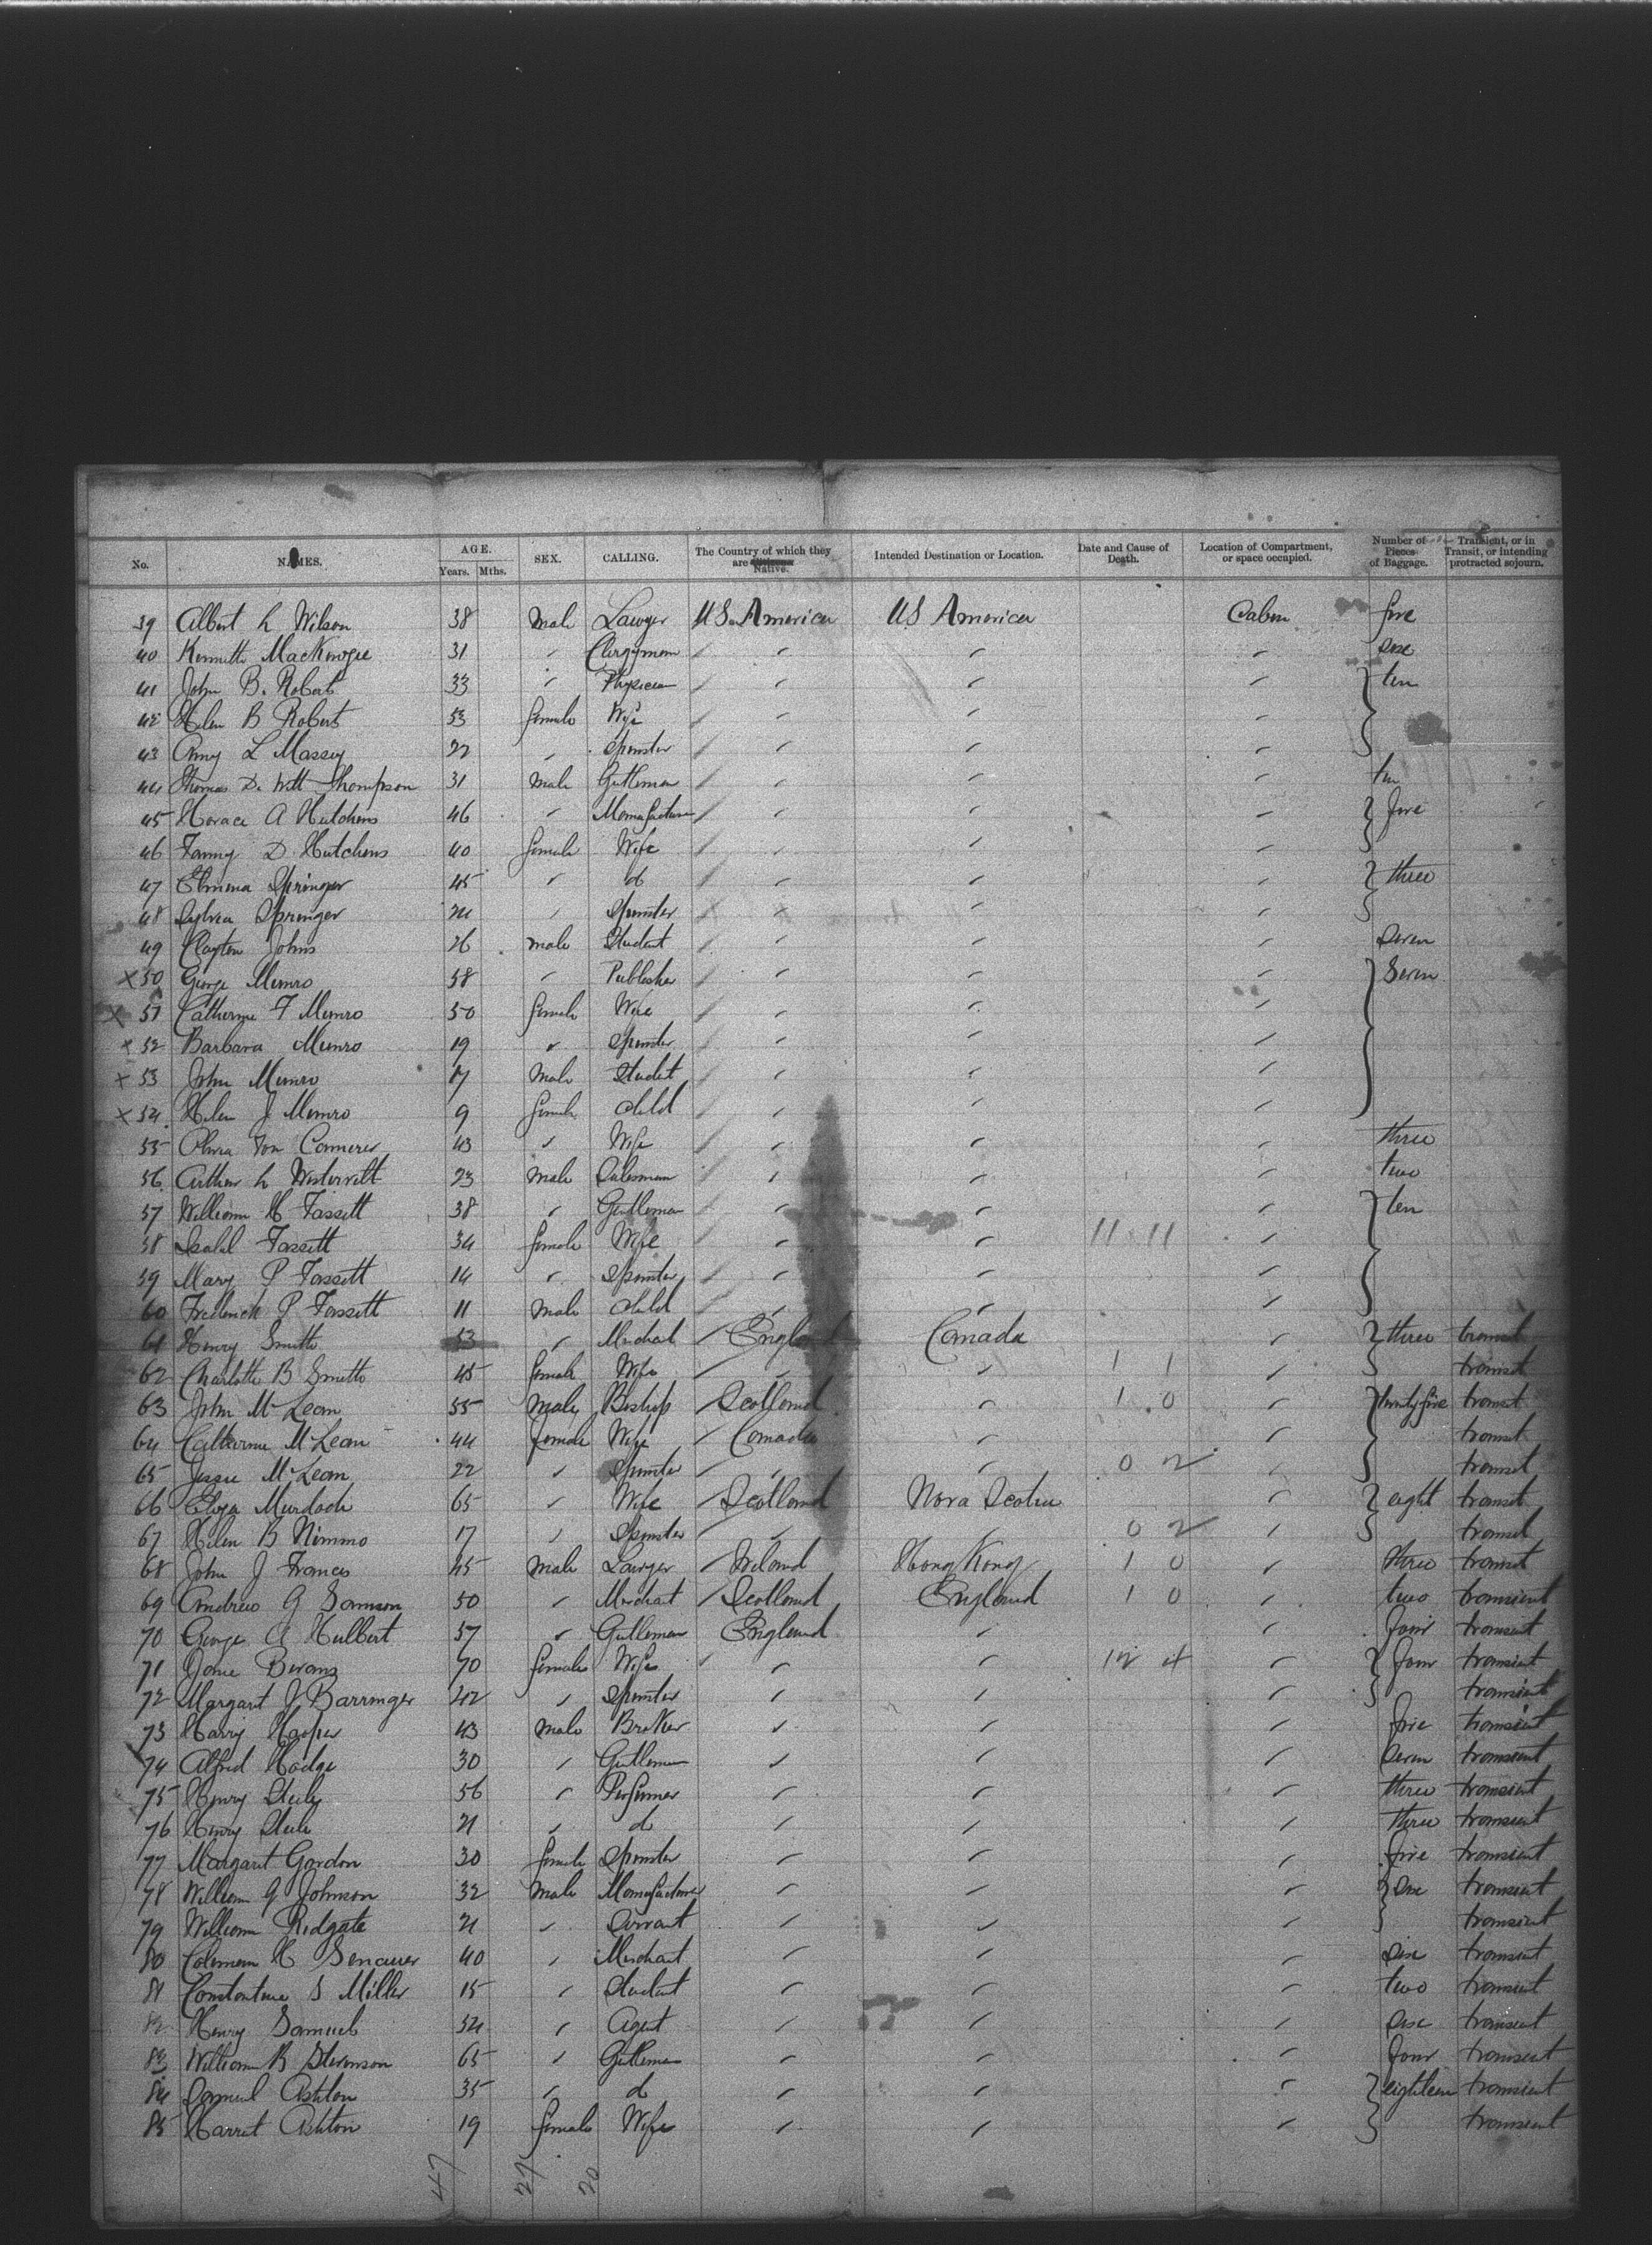 No. NAMES. AGE. Years. Mths. SEX. CALLING. The Country of which they are Citizens Native. Intended Destination or Location. Date and Cause of Death. Location of Compartment, or space occupied. Number of Pieces of Baggage. Transient, or in Transit, or intending protracted sojourn.
39 Albert L Wilson 38 Male Lawyer U.S. America U.S America Cabin five
40 Kenneth MacKenzie 31 " Clergyman " " " one
41 John B. Robert 33 " Physician " " " ten
42 Helen B Robert 53 female Wife " " "
43 Amy L Massey 22 " Spinster " " "
44 Thomas De Witt Thompson 31 Male Gentleman " " " ten
45 Horace A Hutchens 46 " Manufacturer " " " five
46 Fanny D. Hutchens 40 female Wife " " "
47 Emma Springer 45 " do " " " three
48 Sylvia Springer 24 " Spinster " " "
49 Clayton Johns 26 male Student " " " Seven
x 50 George Munro 58 " Publisher " " " Seven
x 51 Catherine F Munro 50 female Wife " " "
x 52 Barbara Munro 19 " Spinster " " "
x 53 John Munro 17 Male Student " " "
x 54 Helen J Munro 9 female child " " "
55 Von 43 " Wife " " " three
56 Arthur L Westervelt 23 Male Salesman " " " two
57 William H Fassett 38 " Gentleman " " " ten
58 Isabel Fassett 34 female Wife " " 11 11 "
59 Mary P Fassett 14 " Spinster " " "
60 Frederick P Fassett 11 Male child " " "
61 Henry Smith 53 " Merchant England Canada " three transit
62 Charlotte B Smith 45 female Wife " " 1 1 " transit
63 John McLean 55 Male Bishop Scotland " 1 0 " twenty five transit
64 Catherine McLean 44 female Wife Canada " " transit
65 Jessie McLean 22 " Spinster " " 0 2 " transit
66 Eliza Murdoch 65 " Wife Scotland Nova Scotia " eight transit
67 Helen B Nimmo 17 " Spinster " " 0 2 " transit
68 John J Francis 45 Male Lawyer Ireland Hong Kong 1 0 " three transit
69 Andrew G Samson 50 " Merchant Scotland England 1 0 " two transient
70 George A Hulbert 57 " Gentleman England " " four transient
71 Jane 70 female Wife " " 12 4 " four transient
72 Margaret J Barringer 42 " Spinster " " " transient
73 Harry Harper 43 Male Broker " " " five transient
74 Alfred Hodge 30 " Gentleman " " " Seven transient
75 Henry 56 " Perfumer " " " three transient
76 Henry 21 " do " " " three transient
77 Margaret Gordon 30 female Spinster " " " five transient
78 William G Johnson 32 Male Manufacturer " " " one transient
79 William Ridgate 21 " Servant " " " transient
80 Coleman H 40 " Merchant " " " transient
81 Constantine S Miller 15 " Student " " " two transient
82 Henry Samuel " Agent " " " transient
83 William B Stevenson 65 " Gentleman " " " four transient
84 Samuel Ashton 35 " do " " " eighteen transient
85 Harriet Ashton 19 female Wife " " " transient
47 27 20